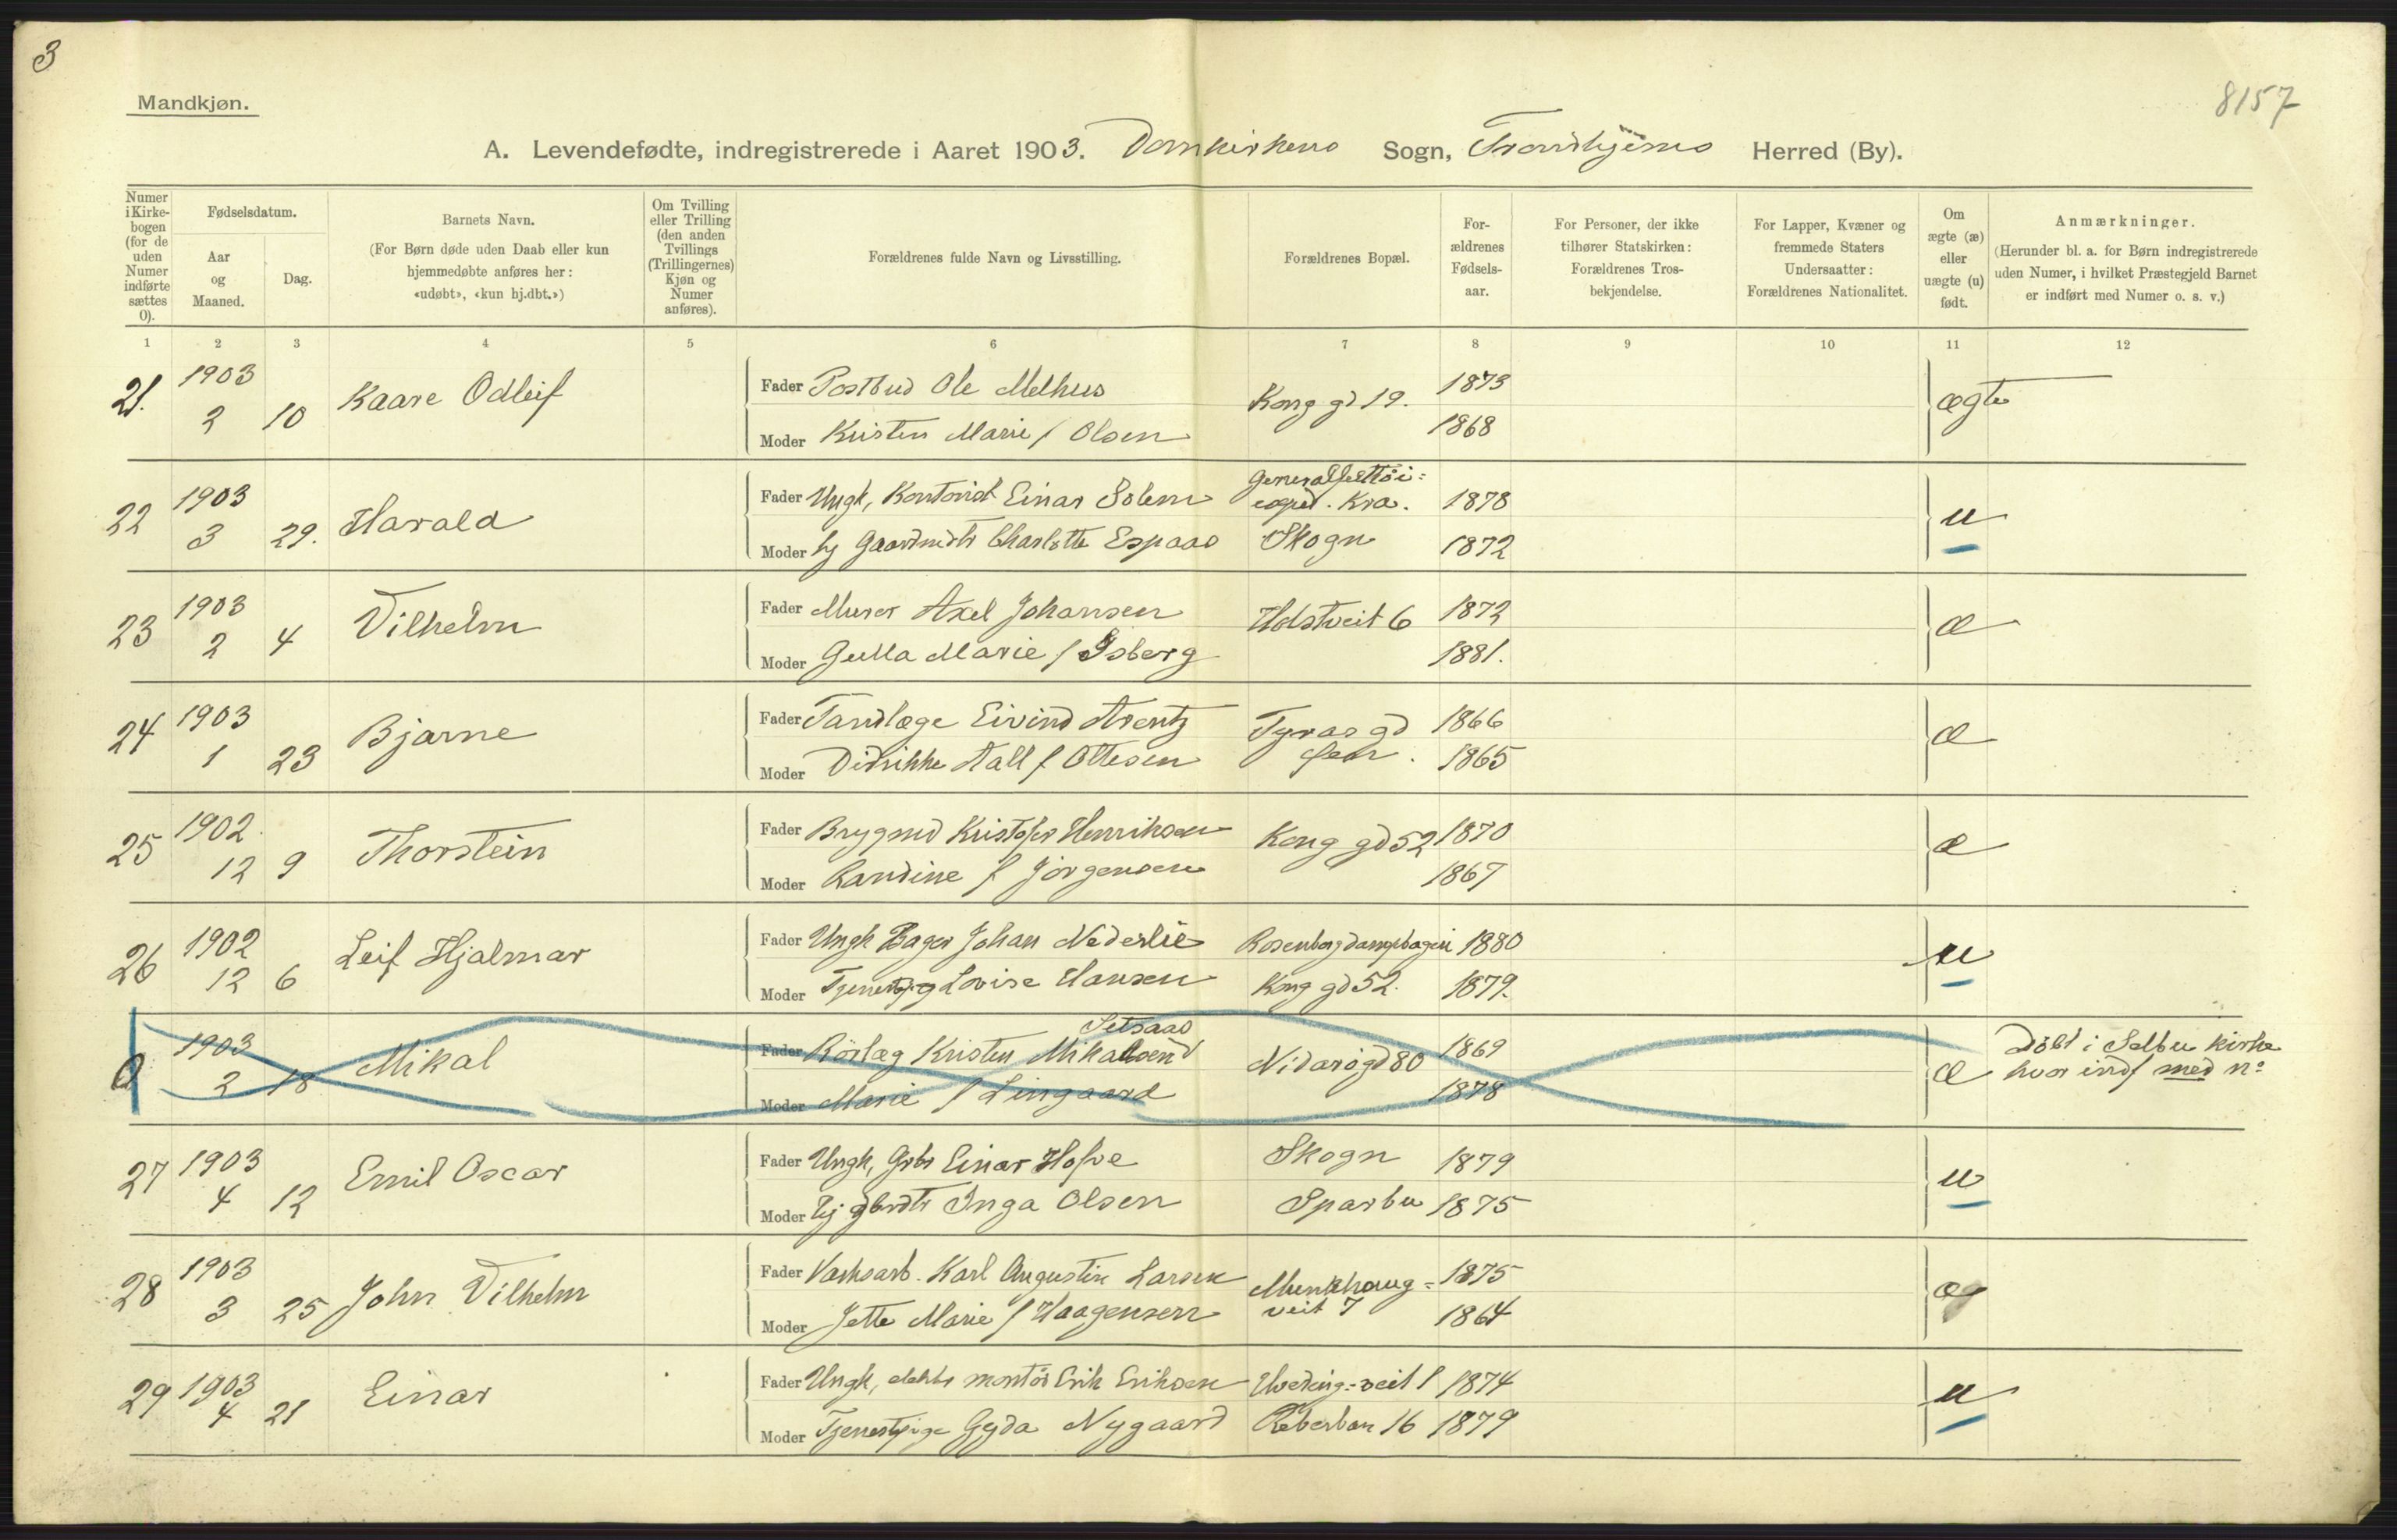 3
8157
Mandkjøn.
A. Levendefødte, indregistrerede i Aaret 1903. Domkirkens Sogn, Trondhjems Herred (By).
Numer i Kirke-bogen (for de uden Numer indførte sættes 0).
Fødselsdatum.
Aar og Maaned.
Dag.
Barnets Navn.
(For Børn døde uden Daab eller kun
hjemmedøbte anføres her:
«udøbt», «kun hj.dbt.»)
Om Tvilling eller Trilling (den anden Tvillings (Trillingernes) Kjøn og Numer anføres).
Forældrenes fulde Navn og Livsstilling.
Forældrenes Bopæl.
For-ældrenes Fødsels-aar.
For Personer, der ikke
tilhører Statskirken:
Forældrenes Tros-
bekjendelse.
For Lapper, Kvæner og
fremmede Staters
Undersaatter:
Forældrenes Nationalitet.
Om ægte (æ) eller uægte (u) født.
Anmærkninger.
(Herunder bl. a. for Børn indregistrerede
uden Numer, i hvilket Præstegjeld Barnet
er indført med Numer o. s. v.)
1 2 3 4 5 6 7 8 9 10 11 12
21. 1903 2 10 Kaare Odleif
Fader Postbud Ole Melhus Kong gd 19. 1873 ægte
Moder Kristen Marie f Olsen 1868
22 1903 3 29. Harald
Fader Ungk, Kontorist Einar Solem Kra. 1878 u
Moder Charlotte Espaas Skogn 1872
23 1903 2 4 Vilhelm
Fader Murer Axel Johansen Holstveit 6 1872 æ
Moder Gulla Marie f Isberg 1881.
24 1903 1 23 Bjarne
Fader Tandlæge Eivind Arentz 1866 æ
Moder Didrikke Aall f Ottesen 1865
25 1902 12 9 Thorstein
Fader Brygmd Kristofer Henriksen Kong gd 52 1870 æ
Moder Randine f Jörgensen 1867
26 1902 12 6 Leif Hjalmar
Fader Ungk Bager Johan Nederlie Rosenborg dampbageri 1880 u
Moder Lovise Hansen Kong gd 52. 1879.
0 1903 2 18 Mikal
Setsaas
Fader Rörlæg Kristen Mikalsen Nidarögd 80 1869 æ Döbt i Selbu kirke
Moder Marie f Lingaard 1878 hvor indf med No
27 1903 4 12 Emil Oscar
Fader Ungk, Gbr Einar Hofve Skogn 1879 u
Moder Inga Olsen Sparbu 1875
28 1903 3 25 John Vilhelm
Fader Karl Augustin Larsen Munkhaug= 1875 æ
veit 7
Moder Jette Marie f Haagensen 1864
29 1903 4 21 Einar
Fader Ungk, elektr montör Erik Eriksen 1874 u
Moder Tjenestpige Gyda Nygaard Reberban 16 1879